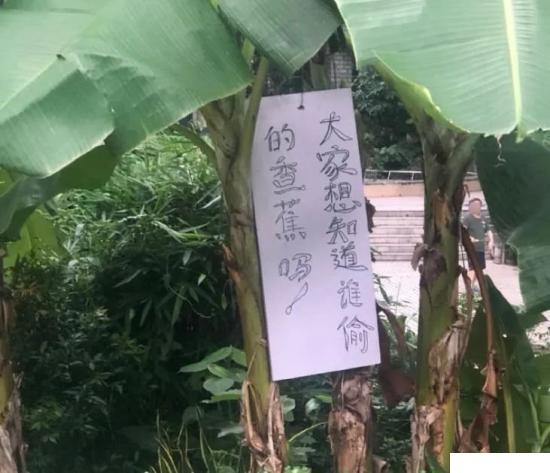 大家想知道谁偷
的香蕉吗！